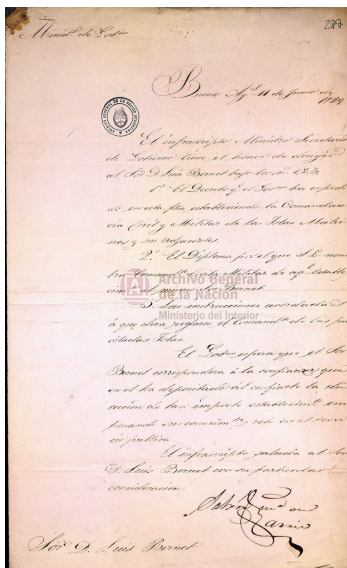 Minist.º de Gob.no
297
Buenos Ay.s 11 de Junio de
1829
El infrascripto Ministro Secretario
de Gobierno tiene el honor de dirigir
al Sor. D. Luis Bernet bajo los n.s 1 2 3
1.º El Decreto q.e el Gob.no ha espedi
do en esta fha estableciendo la Comandan
cia Civil y Militar de las Islas Malvi
nas y sus
2.º El Diploma por el que S. E. nom
bra Comand.te Militar de aq.l
al mismo Sor Bernet
3.º Las instrucciones acordadas
á que debe reglarse el Comand.te de las pre
citadas Islas.
El Gob.no espera que el Sor
Bernet corresponderá á la confianza que
en el ha depositado al confiarle la
de tan importe establecim.to em
peñando su y celo en el servi
cio publico.
El infrascripto saluda al Sor
D. Luis Bernet con su particular
consideracion.
Salv.r M.a del
Carril
Sor. D. Luis Bernet
ARCHIVO GENERAL DE LA NACION
Archivo General
de la Nación
Ministerio del Interior